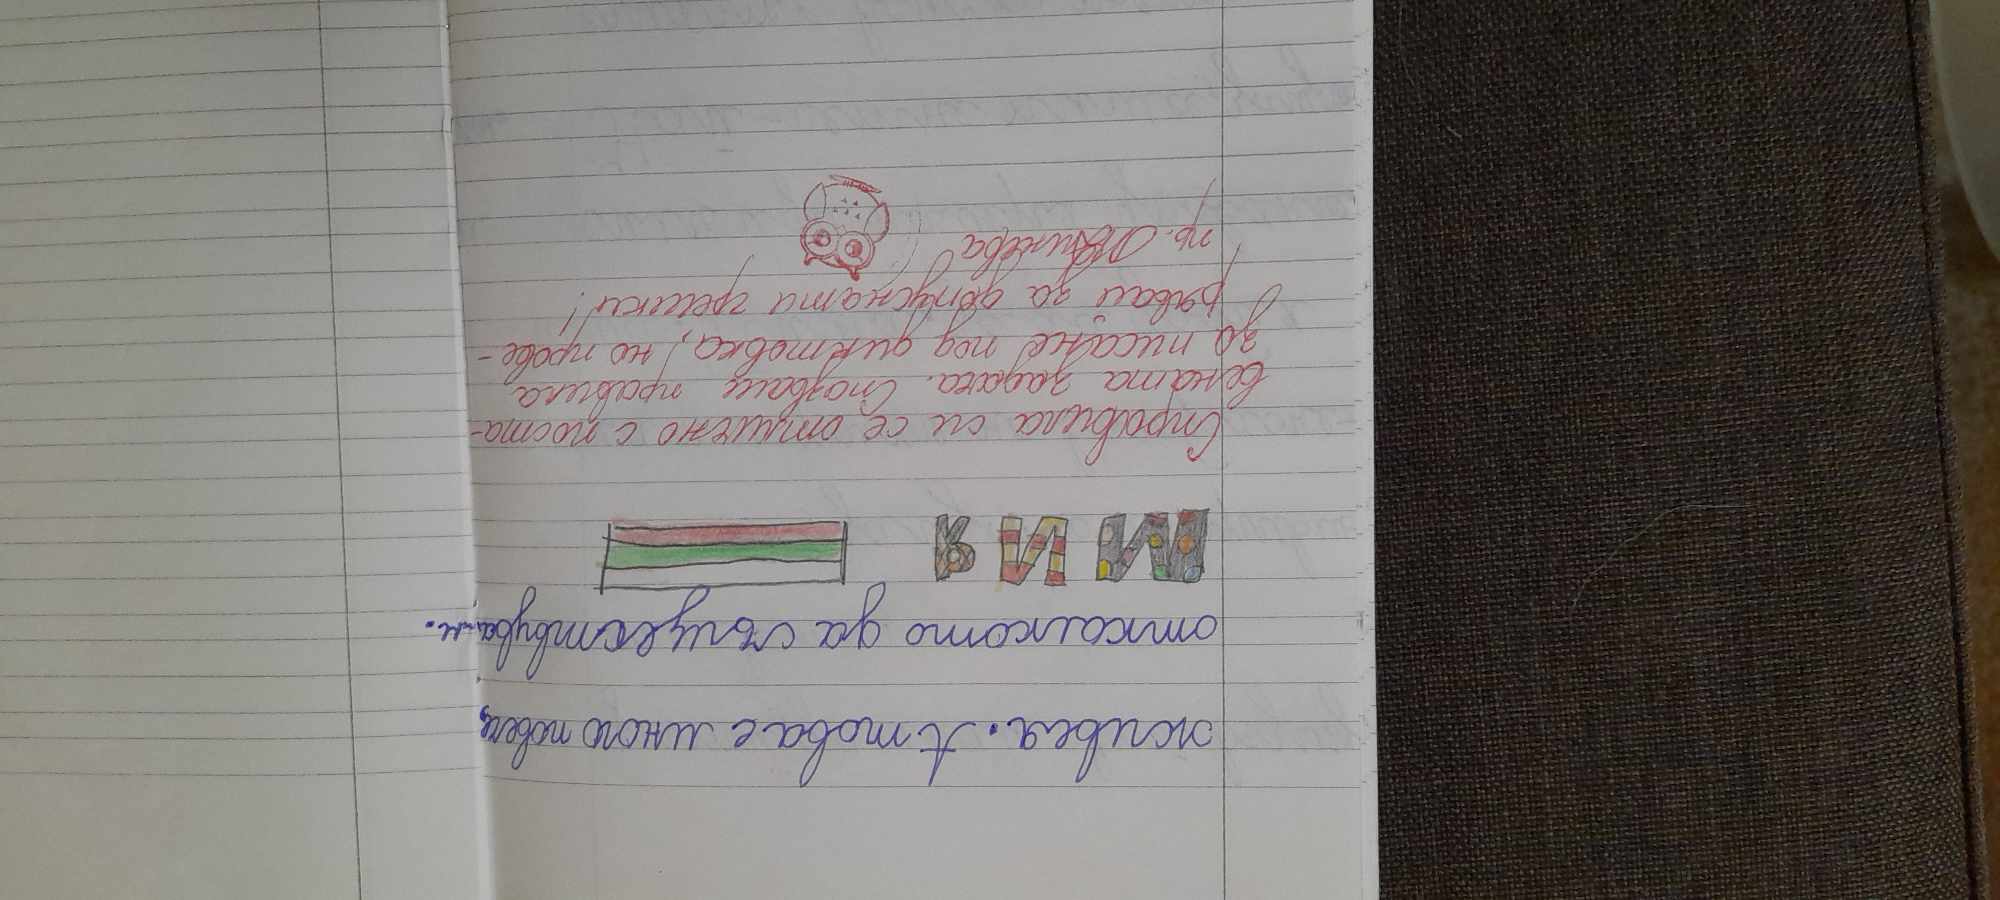 живея. А това е много повече,
отколкото да съществувам.
МИЯ
Справила си се отлично с поста-
вената задача. Спазваш правила
за писане под диктовка, но прове-
рявай за допуснати грешки!
пр.